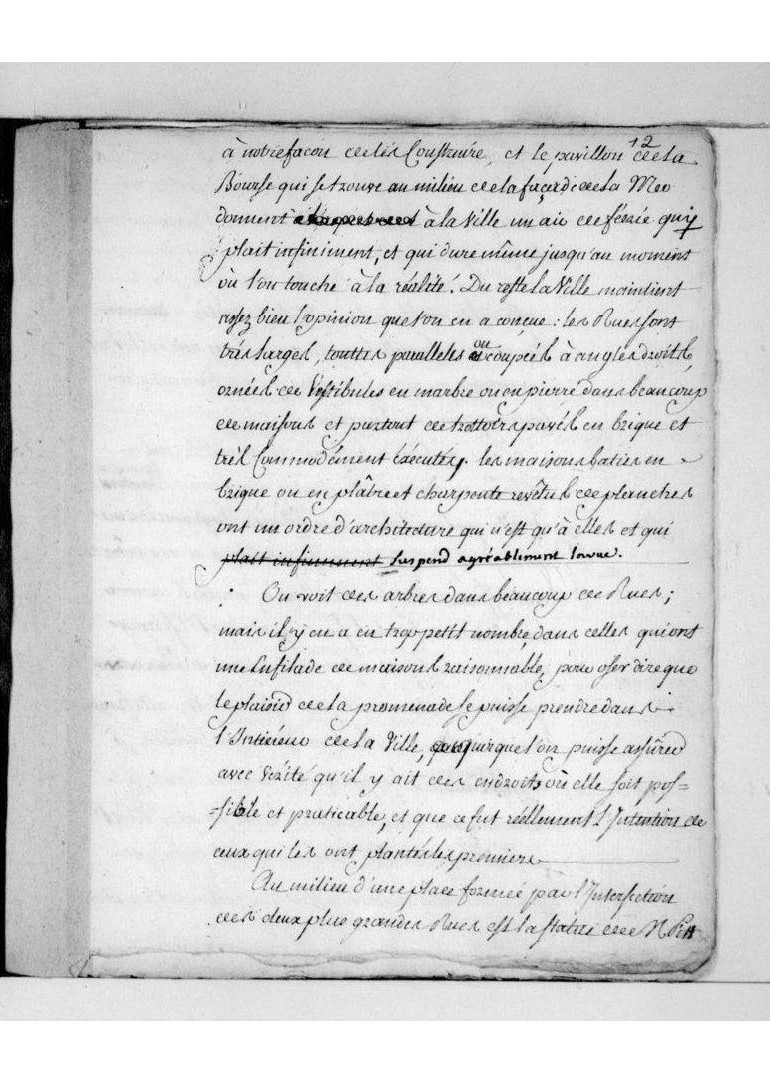 12
à notre façon de les Construire, et le pavillon de la
Bourse qui se trouve au milieu de la façade de la Mer
donnent à la Ville un air de féérie qui
plait infiniment, et qui dure même jusqu'au moment
où l'on touche à la réalité. Du reste la Ville maintient
assez bien l'opinion que l'on en a conçue : les Rues sont
très larges, touttes paralleles ou coupées à angles droits,
ornées de Vestibules en marbre ou en pierre dans beaucoup
de maisons et partout de trottoirs pavés en brique et
très Commodément éxécutés. les maisons baties en
brique ou en plâtre et charpente revêtues de planches
ont un ordre d'architecture qui n'est qu'à elles et qui
plait infiniment suspend agréablement la vue.
On voit des arbres dans beaucoup de Rues ;
mais il y en a en trop petit nombre, dans celles qui ont
une Enfilade de maisons raisonnable, pour oser dire que
le plaisir de la promenade se puisse prendre dans
l'Intérieur de la Ville, quoique l'on puisse assûrer
avec Vérité qu'il y ait des endroits où elle soit pos=
=sible et praticable, et que ce fut réellement l'Intention de
ceux qui les ont plantés les premiers.
Au milieu d'une place formée par l'Intersection
des deux plus grandes Rues est la statue de M Pitt